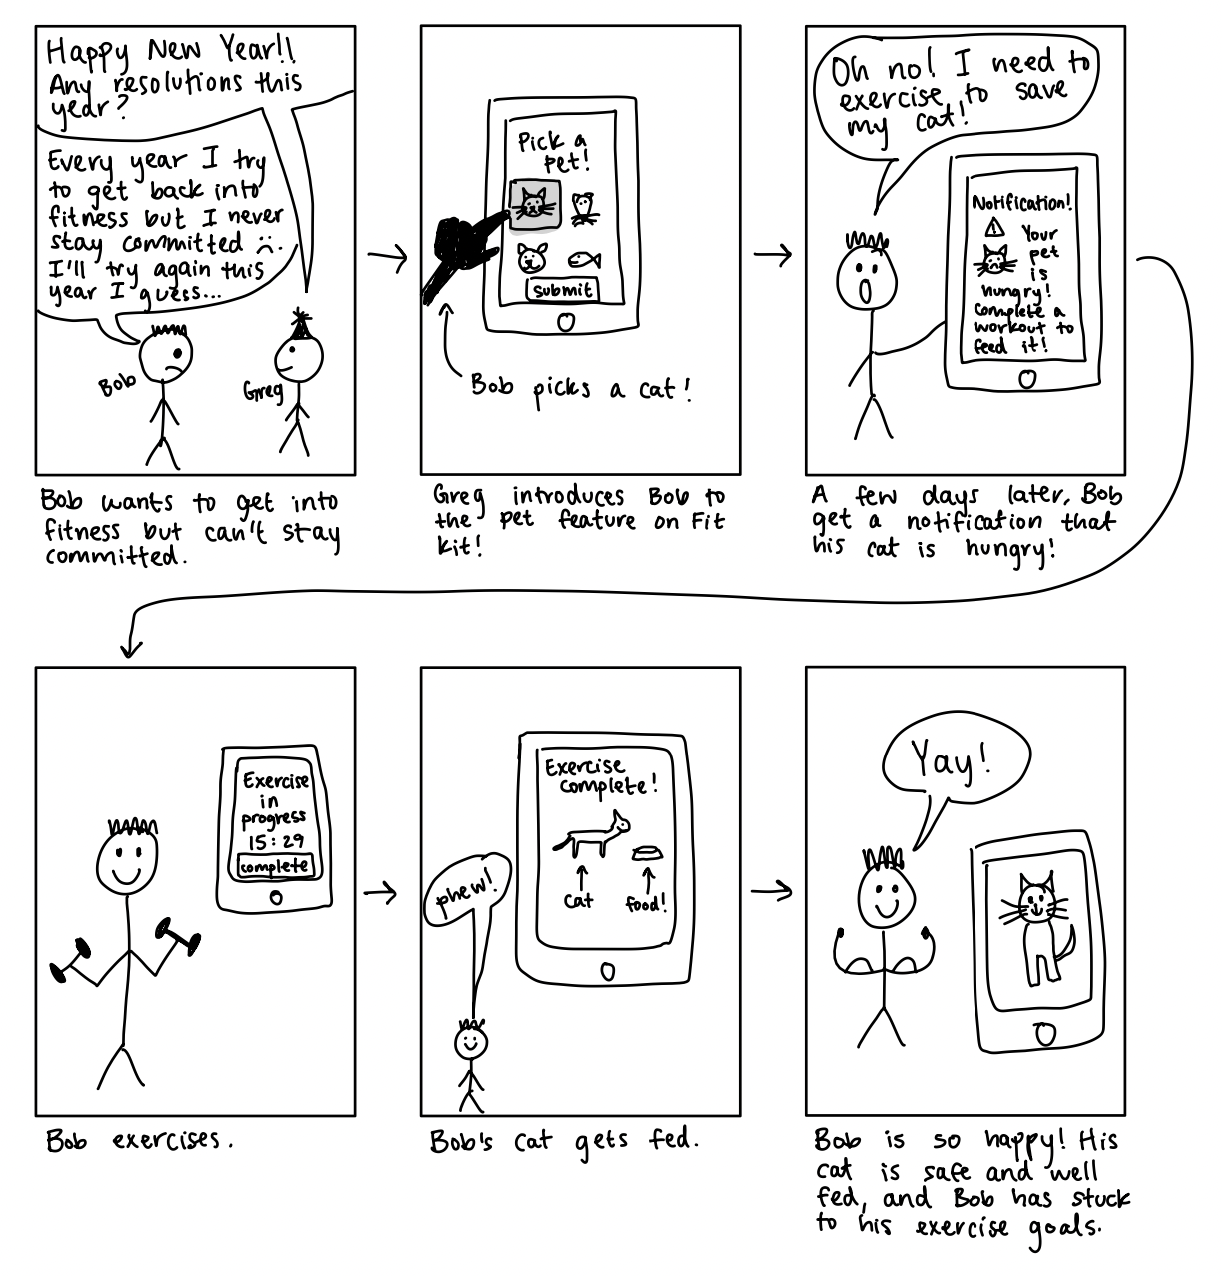 Happy New Year!!
Any resolutions this
year?
Every year I try
to get back into
fitness but I never
stay committed :(.
I'll try again this
year I guess...
Bob
Greg
Bob wants to get into
fitness but can't stay
committed.
Pick a
pet!
submit
Bob picks a cat!
Greg introduces Bob to
the pet feature on Fit
kit!
Oh no! I need to
exercise to save
my cat!
Notification!
Your
pet
is
hungry!
Complete a
workout to
feed it!
A few days later, Bob
get a notification that
his cat is hungry!
Exercise
in
progress
15:29
complete
Bob exercises.
phew!
Exercise
complete!
cat
food!
Bob's cat gets fed.
Yay!
Bob is so happy! His
cat is safe and well
fed, and Bob has stuck
to his exercise goals.